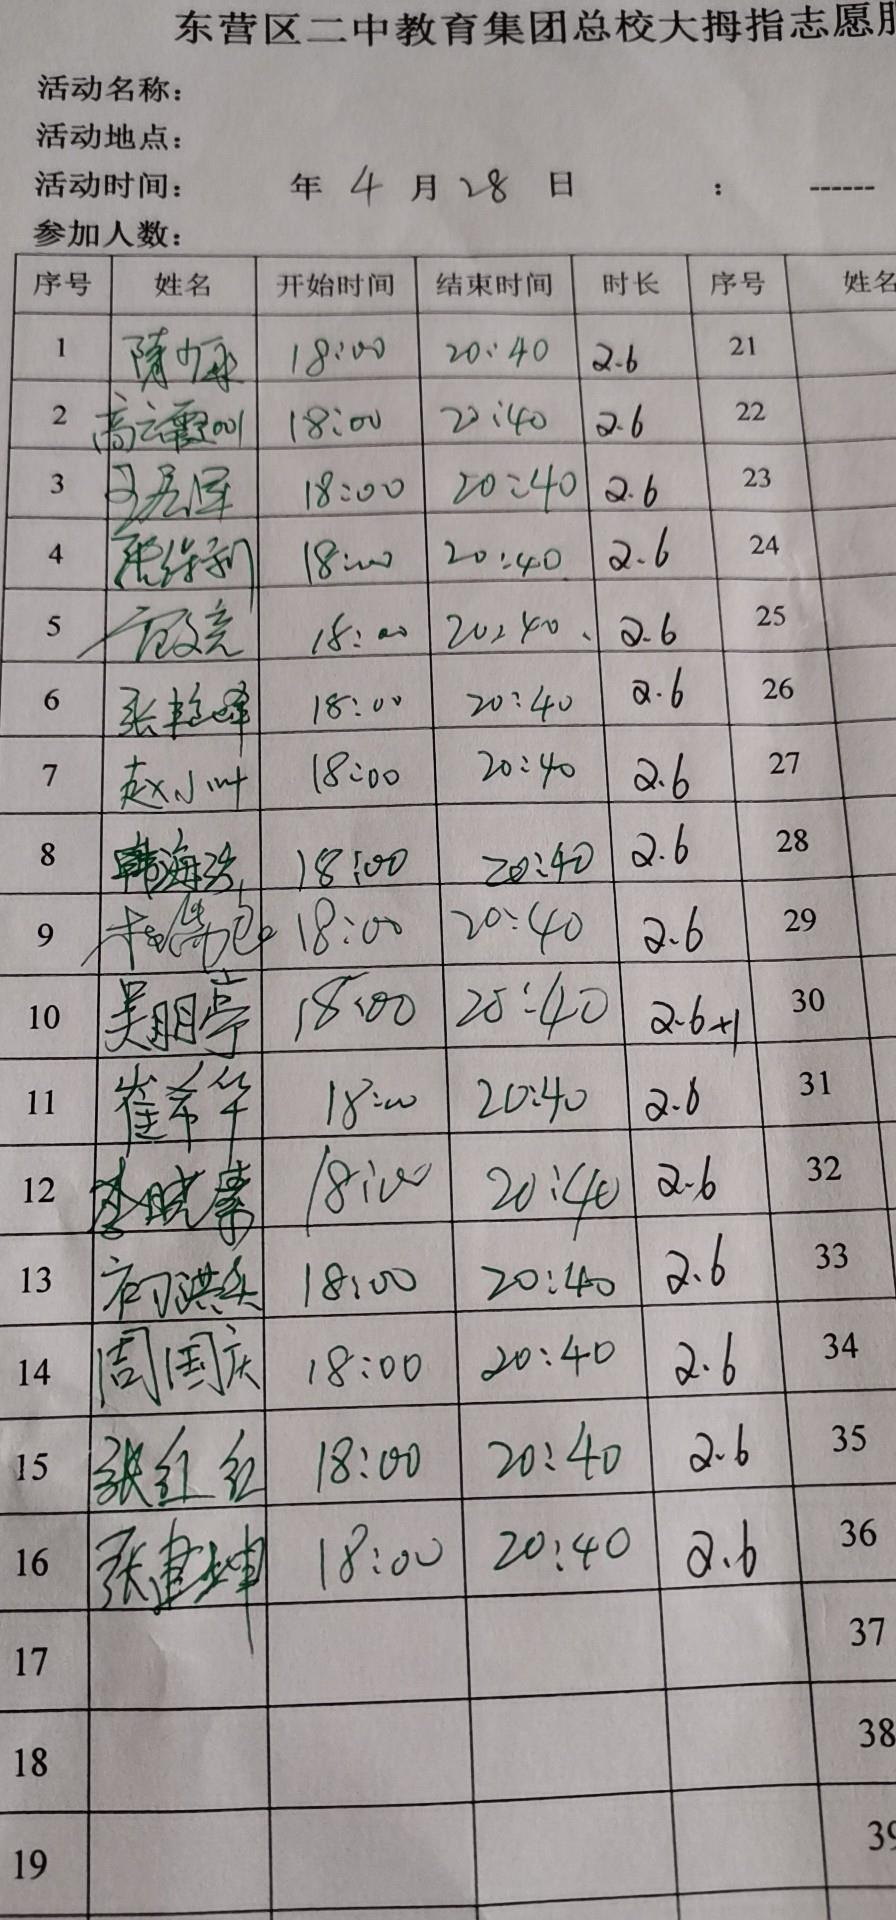 东营区二中教育集团总校大拇指志愿
活动名称：
活动地点：
活动时间： 年 4 月 28 日 ： ------
参加人数：
序号 姓名 开始时间 结束时间 时长 序号 姓名
1 隋 18:00 20:40 2.6 21
2 高 18:00 20:40 2.6 22
3 18:00 20:40 2.6 23
4 18:00 20:40 2.6 24
5 18:00 20:40 2.6 25
6 张艳峰 18:00 20:40 2.6 26
7 赵小叶 18:00 20:40 2.6 27
8 韩海涛 18:00 20:40 2.6 28
9 18:00 20:40 2.6 29
10 吴朋亭 18:00 20:40 2.6+1 30
11 崔希华 18:00 20:40 2.6 31
12 李晓素 18:00 20:40 2.6 32
13 18:00 20:40 2.6 33
14 周国庆 18:00 20:40 2.6 34
15 张红红 18:00 20:40 2.6 35
16 张建坤 18:00 20:40 2.6 36
17 37
18 38
19 39